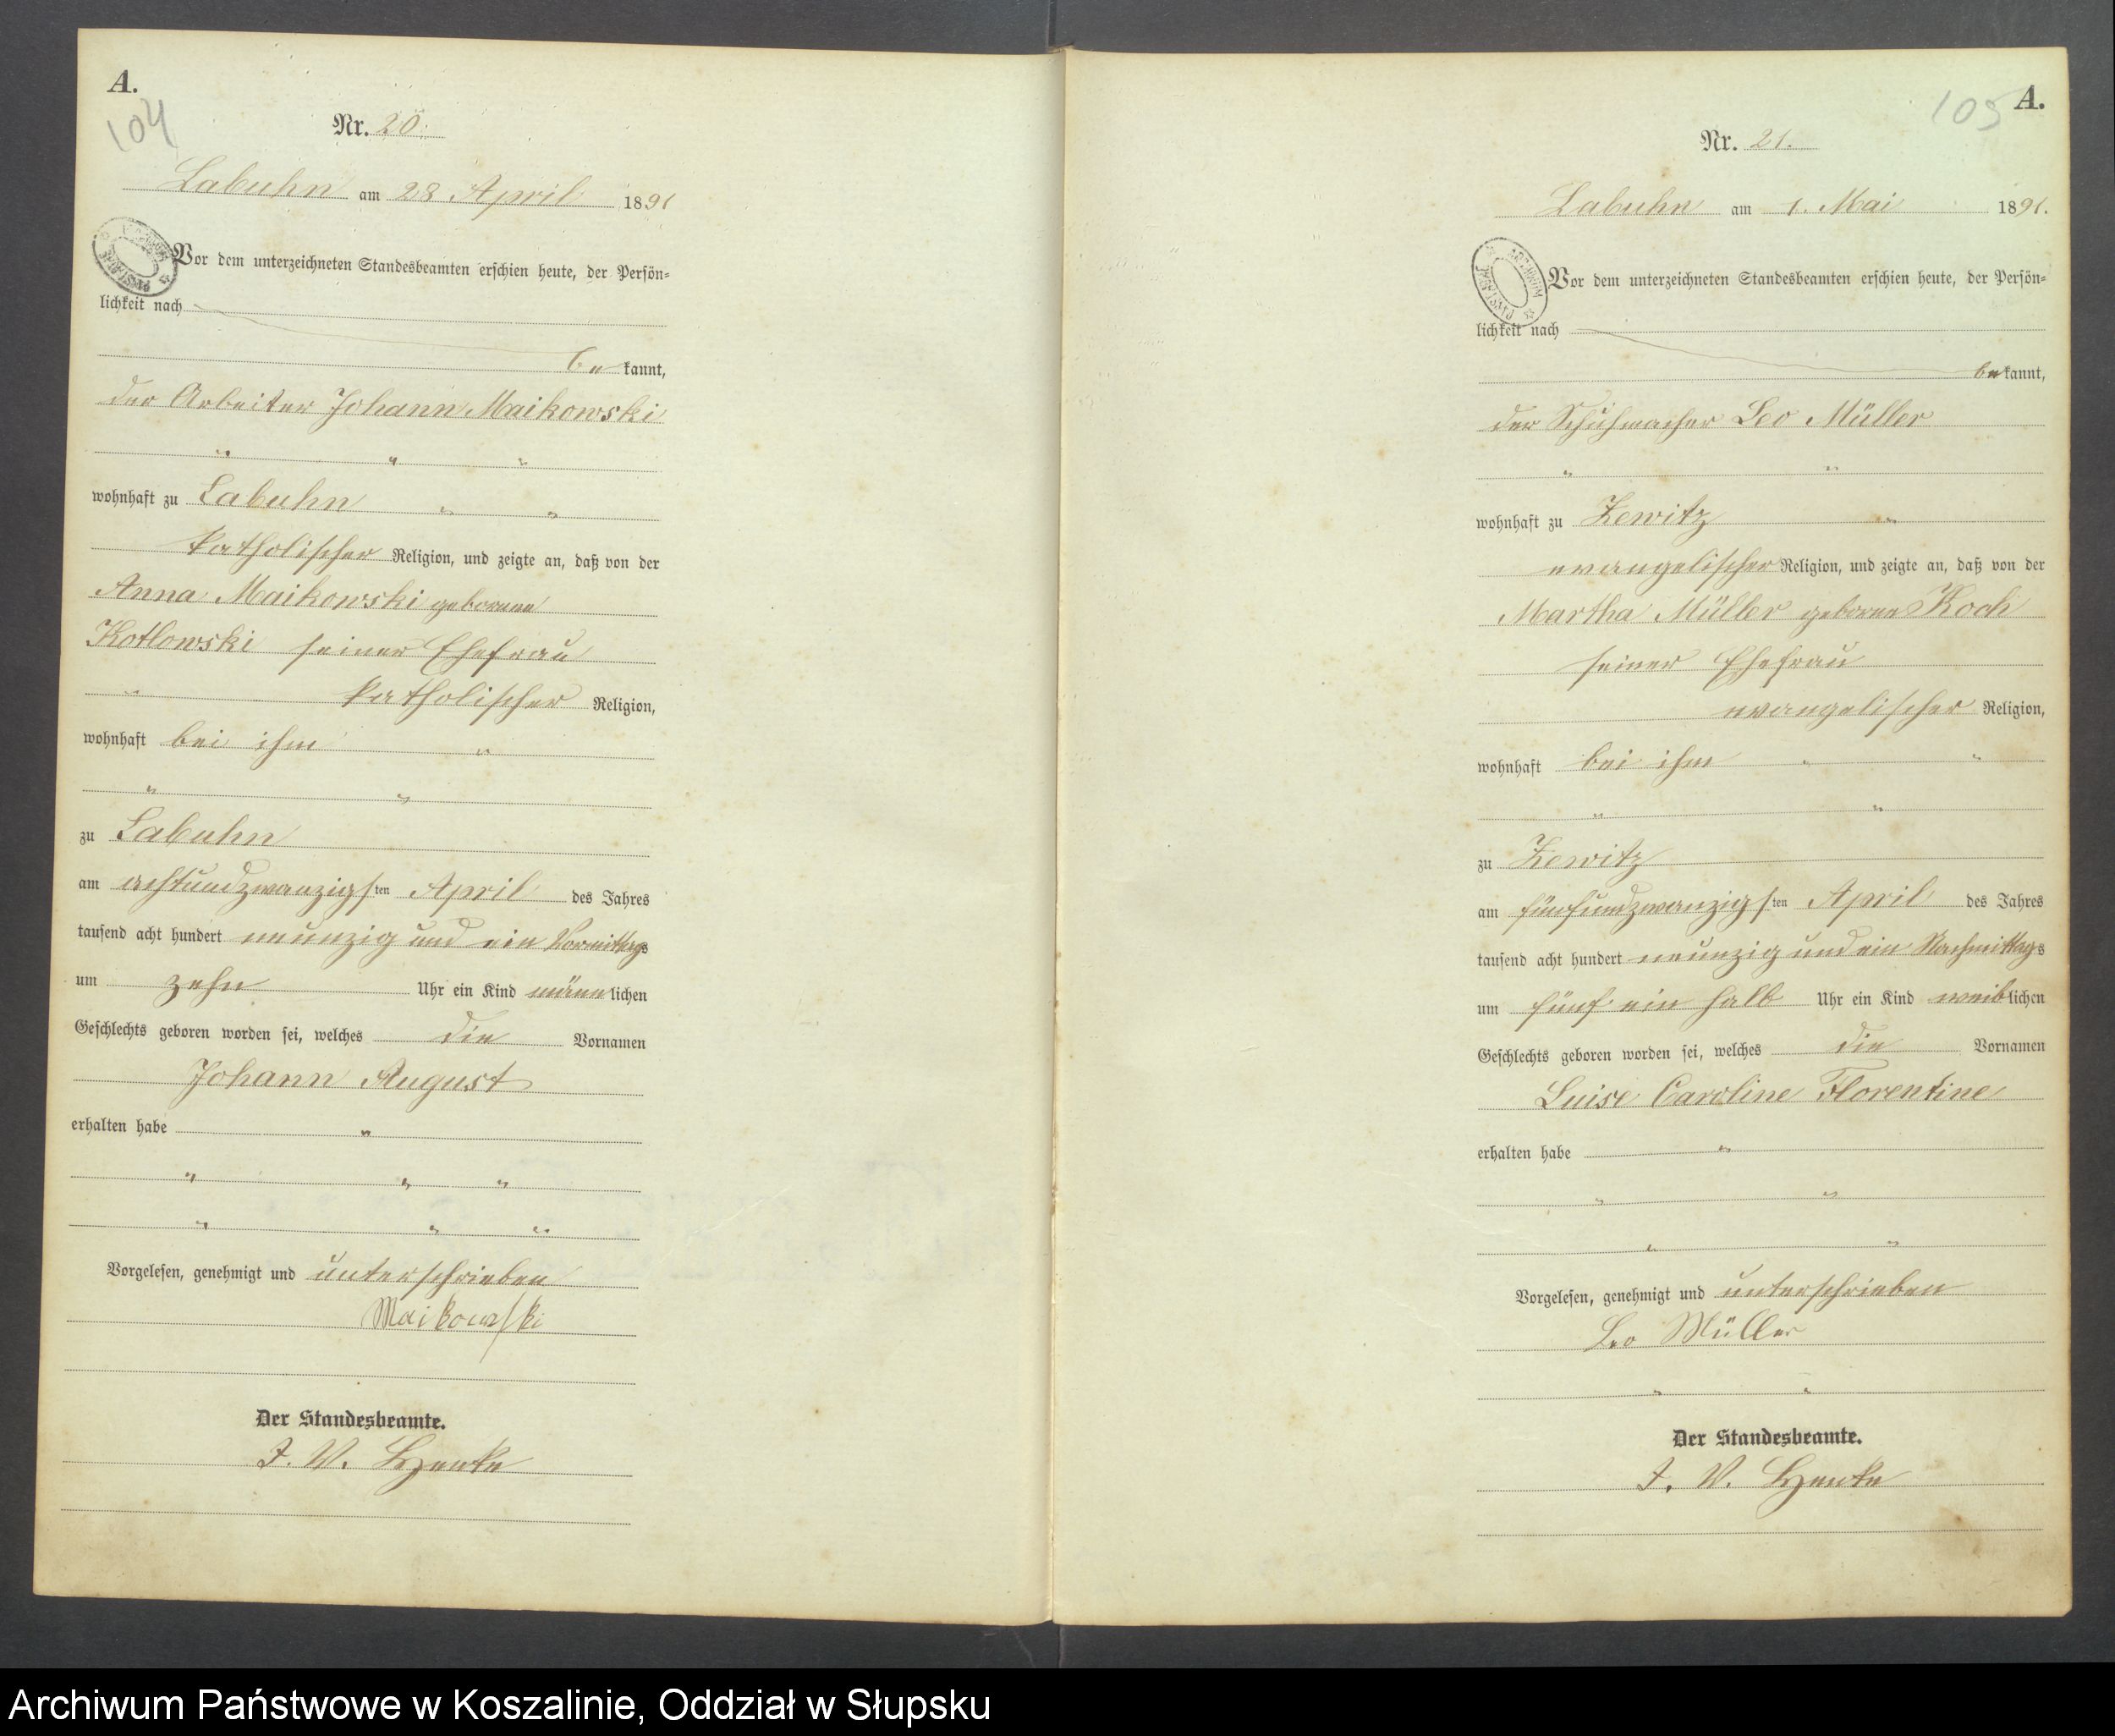 A.
104
Nr. 20.
Labuhn am 28 April 1891
Vor dem unterzeichneten Standesbeamten erschien heute, der Persön-
lichkeit nach
be kannt,
der Arbeiter Johann Maikowski
wohnhaft zu Labuhn
katholischer Religion, und zeigte an, daß von der
Anna Maikowski geborene
Kotlowski seiner Ehefrau
katholischer Religion,
wohnhaft bei ihm
zu Labuhn
am achtundzwanzigsten April des Jahres
tausend acht hundert neunzig und ein Vormittags
um zehn Uhr ein Kind männlichen
Geschlechts geboren worden sei, welches die Vornamen
Johann August
erhalten habe
Vorgelesen, genehmigt und unterschrieben
Maikowski
Der Standesbeamte.
J. V.
A.
105
Nr. 21.
Labuhn am 1. Mai 1891.
ARCHIWUM PAŃSTWOWE
Vor dem unterzeichneten Standesbeamten erschien heute, der Persön-
lichkeit nach
bekannt,
der Schuhmacher Leo Müller
wohnhaft zu Zewitz
evangelischer Religion, und zeigte an, daß von der
Martha Müller geborne Koch
seiner Ehefrau
evangelischer Religion,
wohnhaft bei ihm
zu Zewitz
am fünfundzwanzigsten April des Jahres
tausend acht hundert neunzig und ein Nachmittags
um fünf ein halb Uhr ein Kind weiblichen
Geschlechts geboren worden sei, welches die Vornamen
Luise Caroline Florentine
erhalten habe
Vorgelesen, genehmigt und unterschrieben
Leo Müller
Der Standesbeamte.
J. V.
Archiwum Państwowe w Koszalinie, Oddział w Słupsku